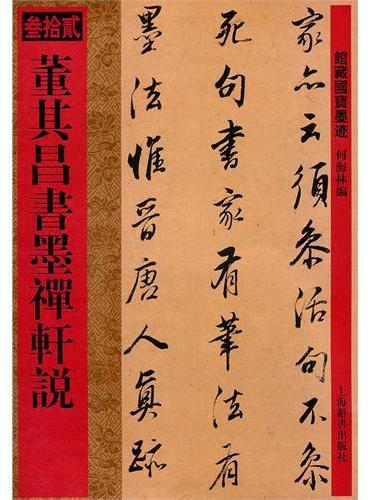 館藏國寶墨迹
何海林編
上海辭書出版社
家亦云須參活句不參
死句書家有筆法有
墨法惟晉唐人真跡
叁拾貳
董其昌書墨禪軒説